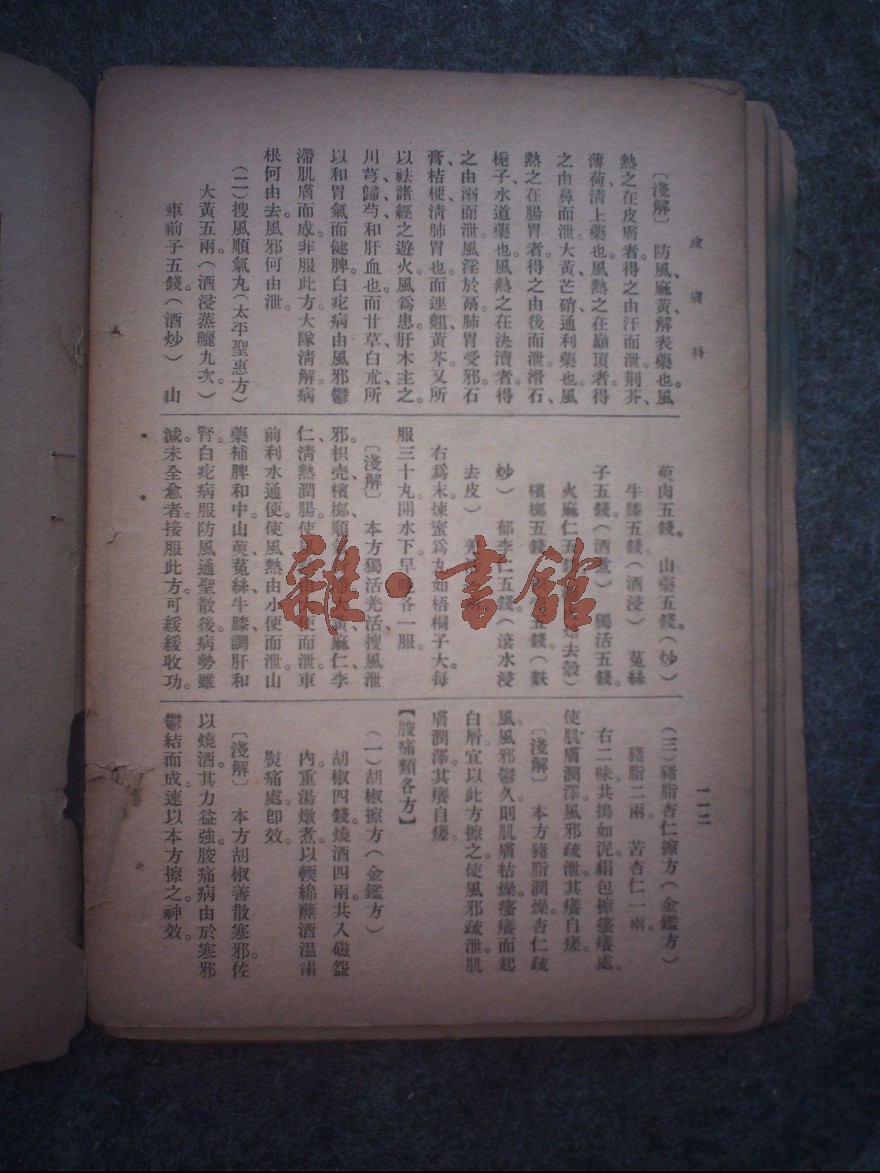 皮膚科
一一二
〔淺解〕 防風、麻黃、解表藥也。風
熱之在皮膚者、得之由汗而泄。荆芥、
薄荷、清上藥也。風熱之在巔頂者、得
之由鼻而泄。大黃、芒硝、通利藥也。風
熱之在腸胃者、得之由後而泄。滑石、
梔子、水道藥也。風熱之在決瀆者、得
之由溺而泄。風淫於鬲、肺胃受邪。石
膏、桔梗、清肺胃也。而連翹、黃芩、又所
以祛諸經之遊火。風爲患、肝木主之。
川芎、歸、芍、和肝血也。而甘草、白朮、所
以和胃氣而健脾。白疕病由風邪鬱
滯肌膚而成。非服此方、大隊清解、病
根何由去。風邪何由泄。
(二)搜風順氣丸(太平聖惠方)
大黃五兩(酒浸蒸曬九次)
車前子五錢(酒炒) 山
萸肉五錢。 山藥五錢。(炒)
牛膝五錢(酒浸) 菟絲
子五錢(酒 ) 獨活五錢。
火麻仁五 去殼)
檳榔五錢 五錢(麩
炒) 郁李仁五錢(滾水浸
去皮) 羌
右爲末。煉蜜爲丸。如梧桐子大。每
服三十丸。開水下。早 各一服。
〔淺解〕 本方獨活、 活、搜風泄
邪。枳壳、檳榔、順 大黃、麻仁、李
仁、清熱潤腸。使 便而泄。車
前利水通便。使風熱由小便而泄。山
藥補脾和中。山萸、菟絲、牛膝、調肝和
腎。白疕病服防風通聖散後。病勢雖
減。未全愈者。接服此方。可緩緩收功。
(三)豬脂杏仁擦方(金鑑方)
豬脂二兩。 苦杏仁一兩。
右二味。共搗如泥。絹包擦瘙癢處。
使肌膚潤澤。風邪疏泄。其癢自瘥。
〔淺解〕 本方豬脂潤燥。杏仁疏
風。風邪鬱久。則肌膚枯燥。瘙癢而起
白屑。宜以此方擦之。使風邪疏泄。肌
膚潤澤。其癢自瘥。
【朘痛類各方】
(一)胡椒擦方(金鑑方)
胡椒四錢。燒酒四兩。共入磁 
內。重湯燉煮。以輭綿蘸酒温
熨痛處。即效。
〔淺解〕 本方胡椒善散寒邪。佐
以燒酒。其力益強。朘痛病由於寒邪
鬱結而成。速以本方擦之。神效。
雜·書館